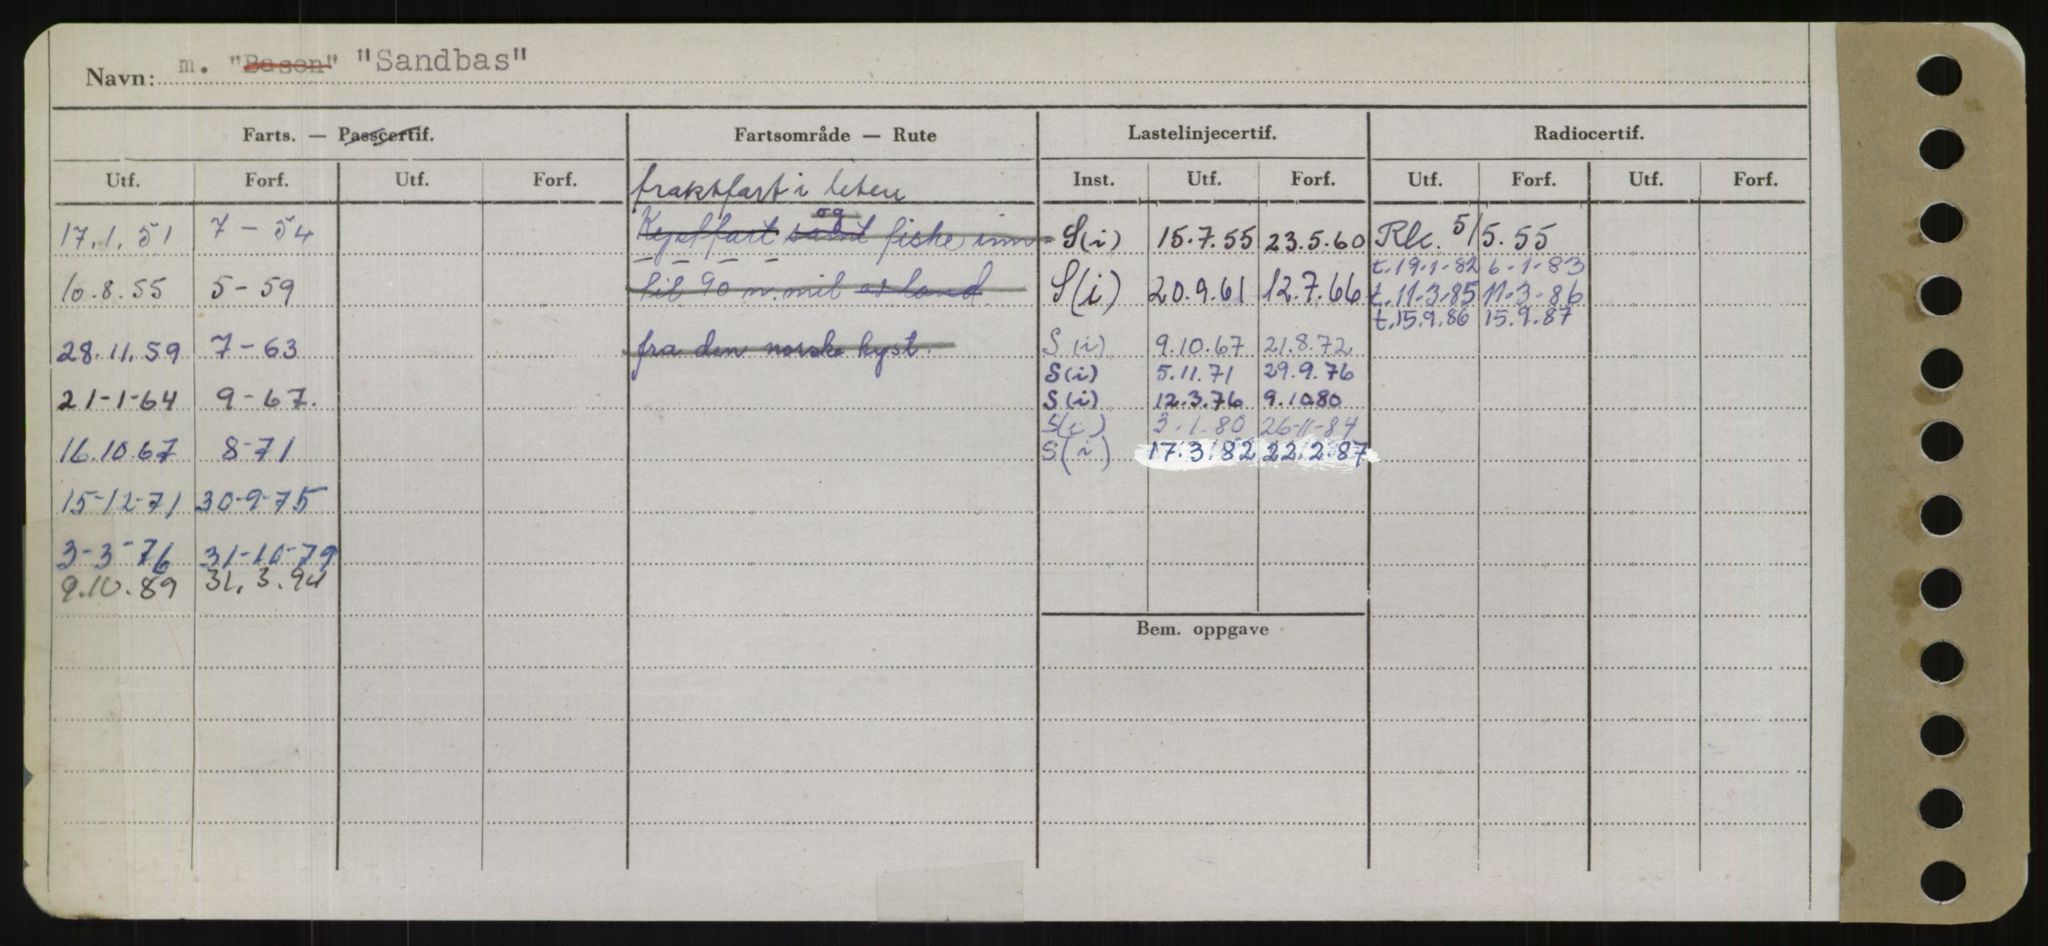 Navn: m. "Bason" "Sandbas"
Farts. — Passcertif. Fartsområde — Rute Lastelinjecertif. Radiocertif.
Utf. Forf. Utf. Forf. Inst. Utf. Forf. Utf. Forf. Utf. Forf.
fraktfart i leten
17.1.51 7-54 Kystfart samt og fiske inn- S(i) 15.7.55 23.5.60 Rk. 5/5.55
t.19-1-82 6-1-83
10.8.55 5-59 til 90 n.mil av land S(i) 20.9.61 12.7.66 t.11-3-85 11-3-86
t.15.9.86 15.9.87
28.11.59 7-63 fra den norske kyst. S(i) 9.10.67 21.8.72
S(i) 5.11.71 29.9.76
21-1-64 9-67. S(i) 12.3.76 9.10.80
S(i) 3-1.80 26-11-84
16.10.67 8-71 S(i) 17.3.82 22.2.87
15-12-71 30-9-75
3-3-76 31-10-79
9.10.89 31.3.94
Bem. oppgave